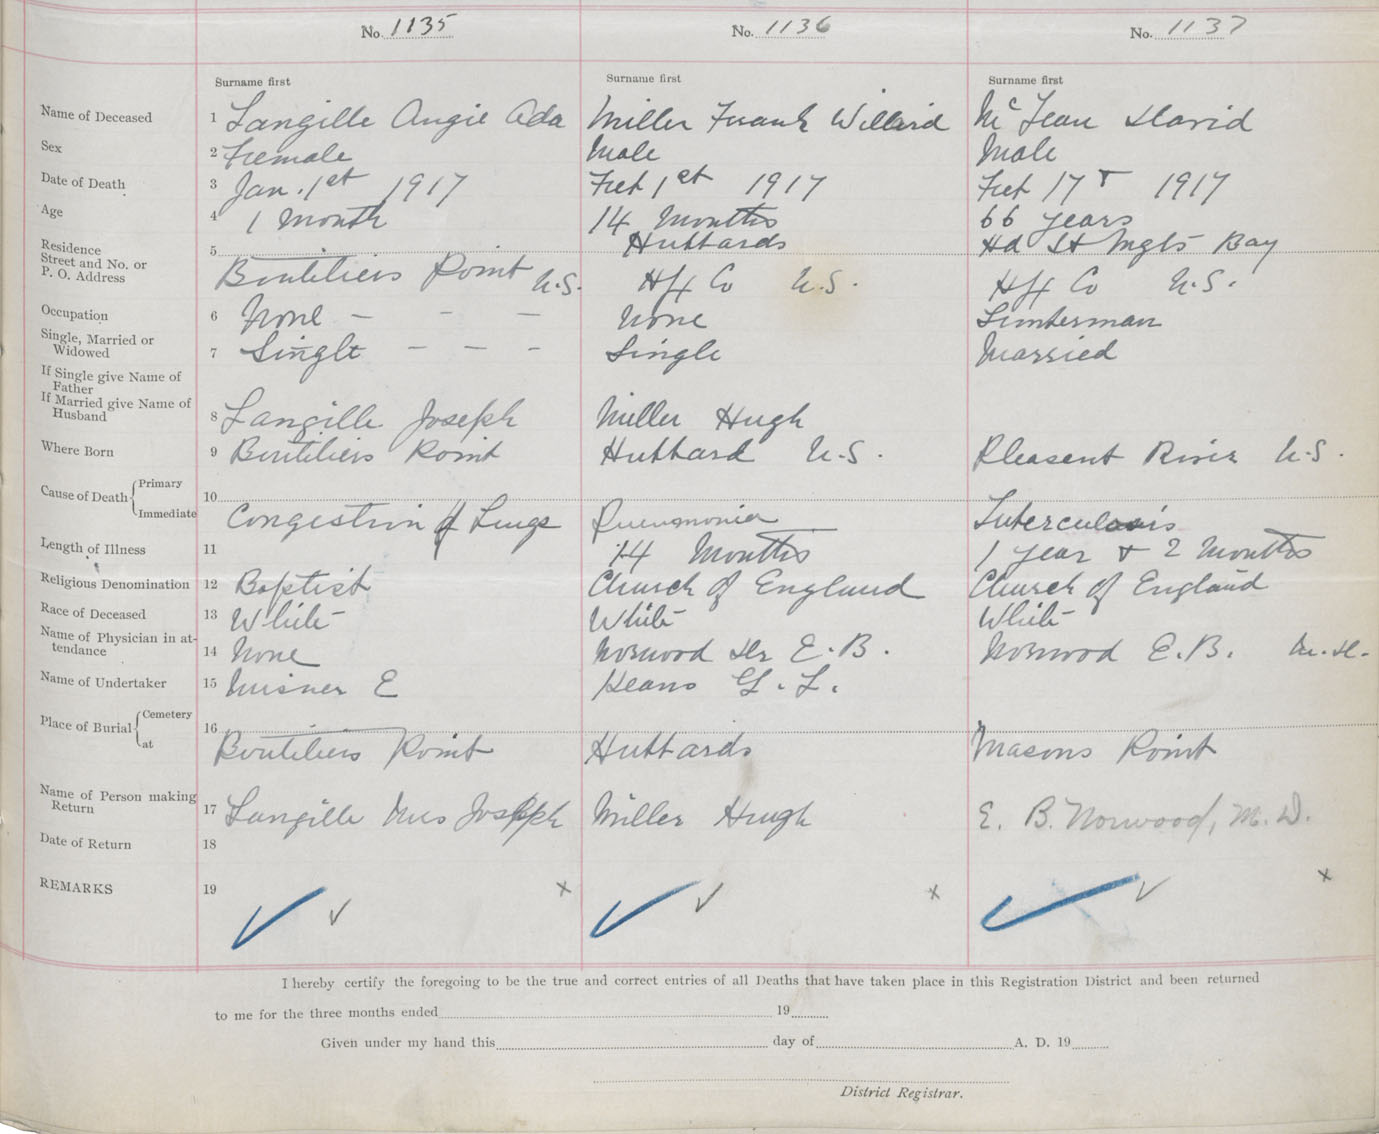 No. 1135 No. 1136 No. 1137
Surname first Surname first Surname first
Name of Deceased 1 Langille Angie Ada Miller Frank Willard McLean David
Sex 2 Female Male Male
Date of Death 3 Jan. 1st 1917 Feb 1st 1917 Feb 17 1917
Age 4 1 Month 14 Months 66 years
Residence 5 Hubbards Hd St Mgts Bay
Street and No. or
P. O. Address Boutiliers Point N.S. Hfx Co N.S. Hfx Co N.S.
Occupation 6 None - - - None Lumberman
Single, Married or
Widowed 7 Single - - - Single Married
If Single give Name of
Father
If Married give Name of
Husband 8 Langille Joseph Miller Hugh
Where Born 9 Boutiliers Point Hubbard N.S. Pleasent River N.S.
Cause of Death Primary 10
Immediate Congestion of Lungs Pneumonia Tuberculosis
Length of Illness 11 14 Months 1 year & 2 Months
Religious Denomination 12 Baptist Church of England Church of England
Race of Deceased 13 White White White
Name of Physician in at-
tendance 14 None Norwood Dr E. B. Norwood E. B. M. D.
Name of Undertaker 15 Misner E Keans G. L.
Place of Burial Cemetery 16
at Boutiliers Point Hubbards Masons Point
Name of Person making
Return 17 Langille Mrs Joseph Miller Hugh E. B. Norwood, M. D.
Date of Return 18
REMARKS 19
I hereby certify the foregoing to be the true and correct entries of all Deaths that have taken place in this Registration District and been returned
to me for the three months ended 19
Given under my hand this day of A. D. 19
District Registrar.